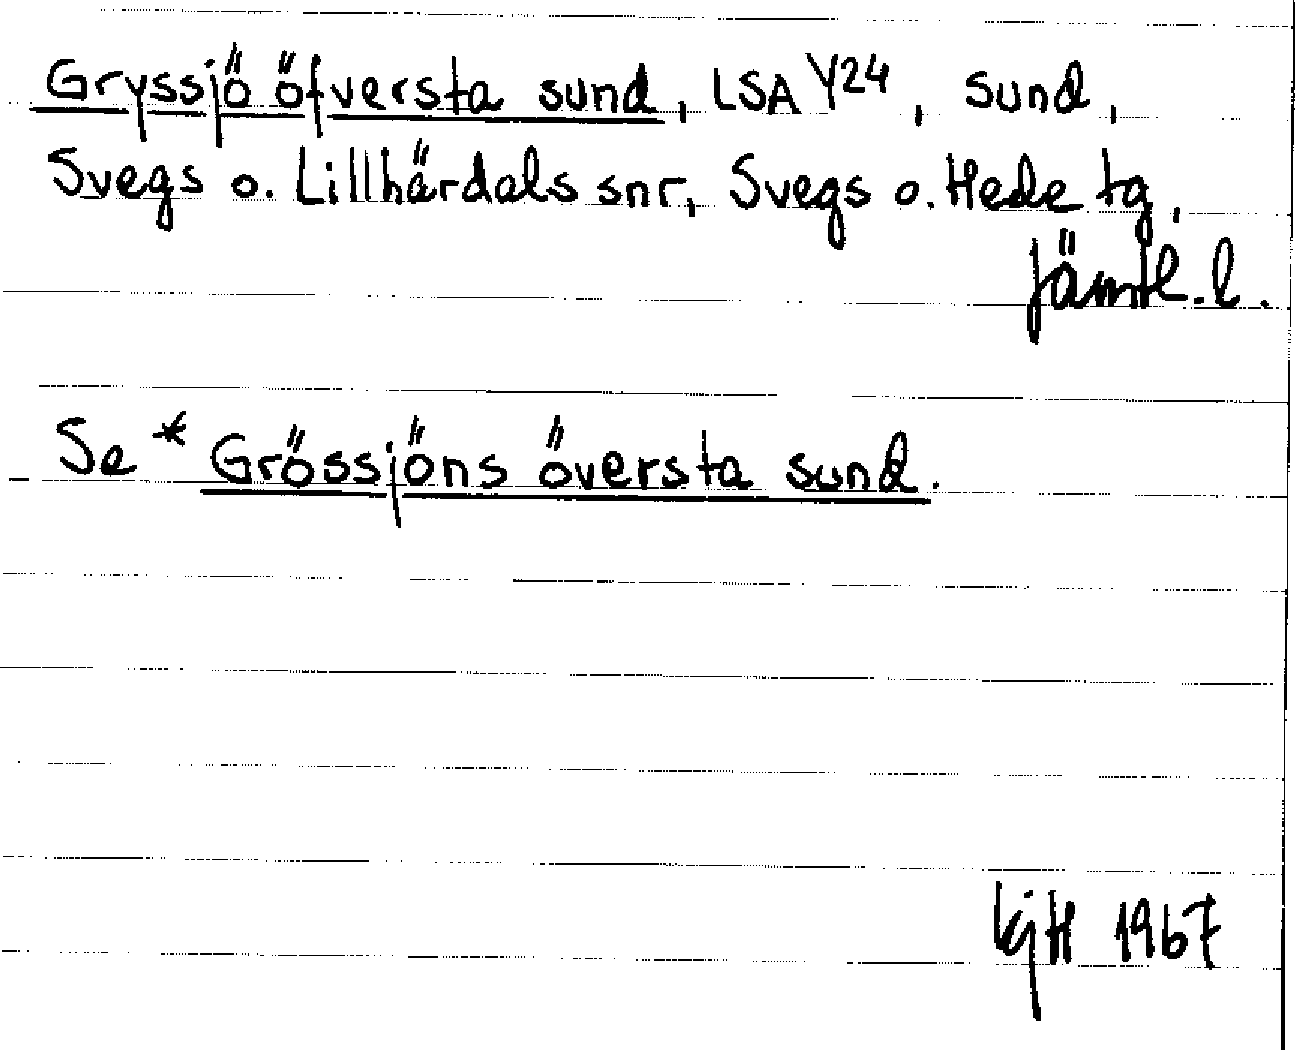 Gryssjö öfversta sund, LSA Y24, sund,
Svegs o. Lillhärdals snr, Svegs o. Hede tg,
Jämtl. l.
Se * Grössjöns översta sund.
KjH 1967